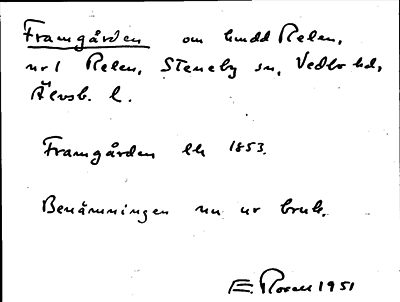 Framgården om hmdd Relen,
nr 1 Relen, Steneby sn, Vedbo hd,
Älvsb. l.
Framgården lh 1853.
Benämningen nu ur bruk.
E. Rosen 1951